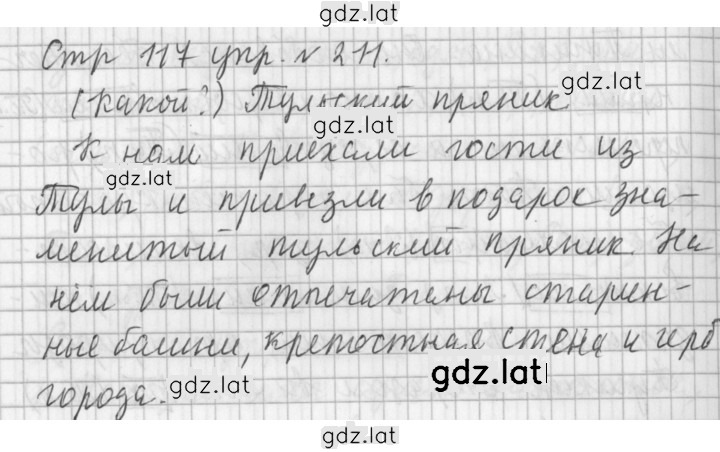 gdz.lat
Стр 117 упр. № 211.
gdz.lat
(Какой?) Тульский пряник
gdz.lat
К нам приехали гости из
gdz.lat
Тулы и привезли в подарок зна-
менитый тульский пряник. На
нём были отпечатаны старин-
ные башни, крепостная стена и герб
gdz.lat
города.
gdz.lat
gdz.lat